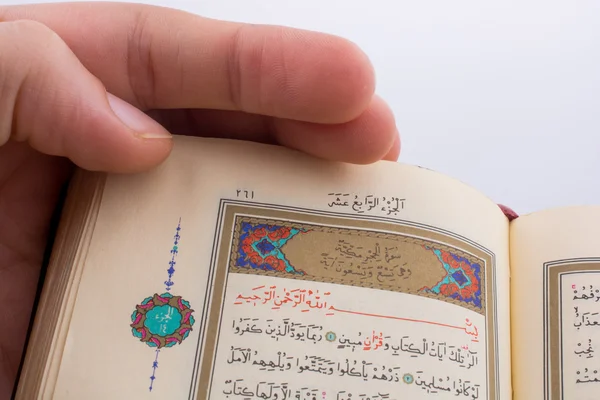 ٢٦١
اَلْجُزْءُ الرَّابِعُ عَشَرَ
سُورَةُ الْحِجْرِ مَكِّيَّةٌ
وَهِيَ تِسْعٌ وَتِسْعُونَ آيَةً
بِسْمِ اللّٰهِ الرَّحْمٰنِ الرَّحِيمِ
الٓرٰ تِلْكَ اٰيَاتُ الْكِتَابِ وَقُرْاٰنٍ مُبِينٍ ١ رُبَمَا يَوَدُّ الَّذِينَ كَفَرُوا
لَوْ كَانُوا مُسْلِمِينَ ٢ ذَرْهُمْ يَأْكُلُوا وَيَتَمَتَّعُوا وَيُلْهِهِمُ الْاَمَلُ
اِلَّا وَلَهَا كِتَابٌ
الجزء
١٤